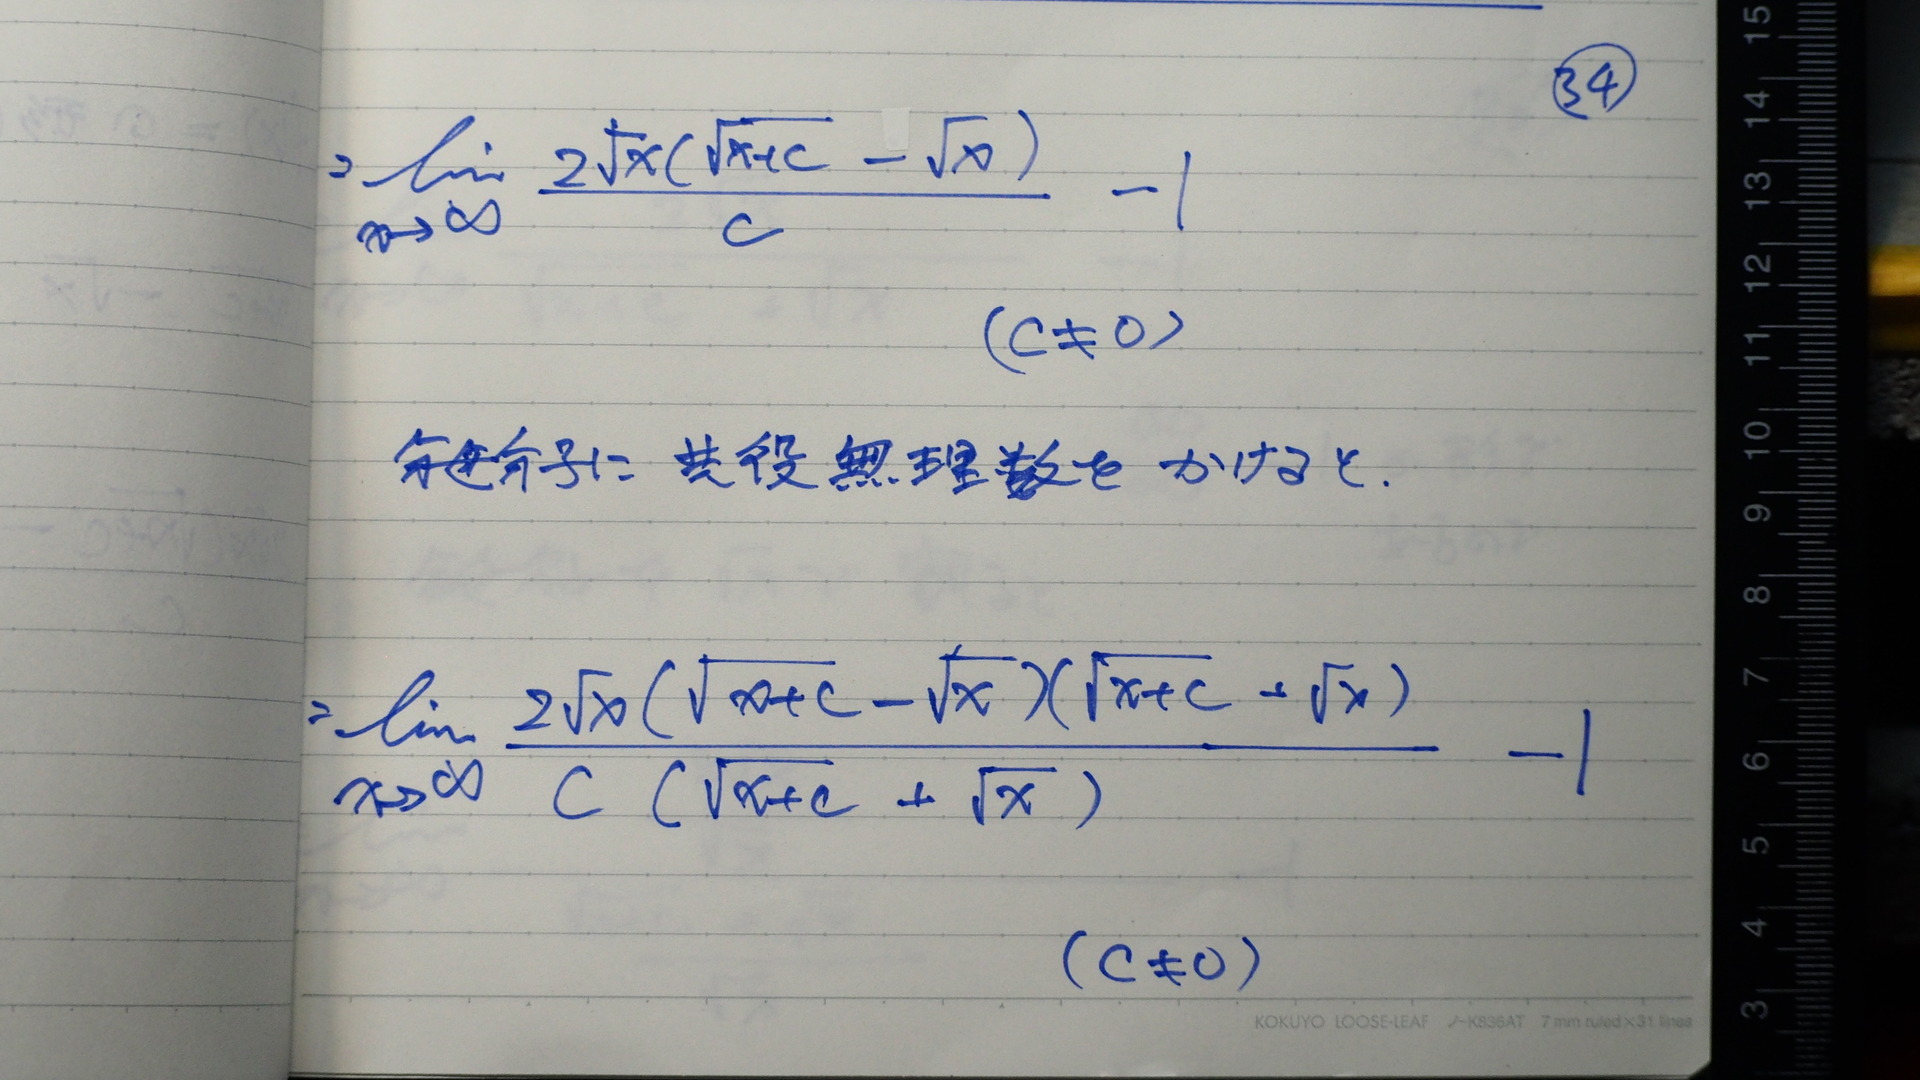 ㉞
= lim x→∞ 2√x(√x+c − √x) / c − 1
(c ≠ 0)
分母分子に共役無理数をかけると.
= lim x→∞ 2√x(√x+c − √x)(√x+c + √x) / c (√x+c + √x) − 1
(c ≠ 0)
KOKUYO LOOSE-LEAF ノ-K836AT 7mm ruled×31 lines
15
14
13
12
11
10
9
8
7
6
5
4
3